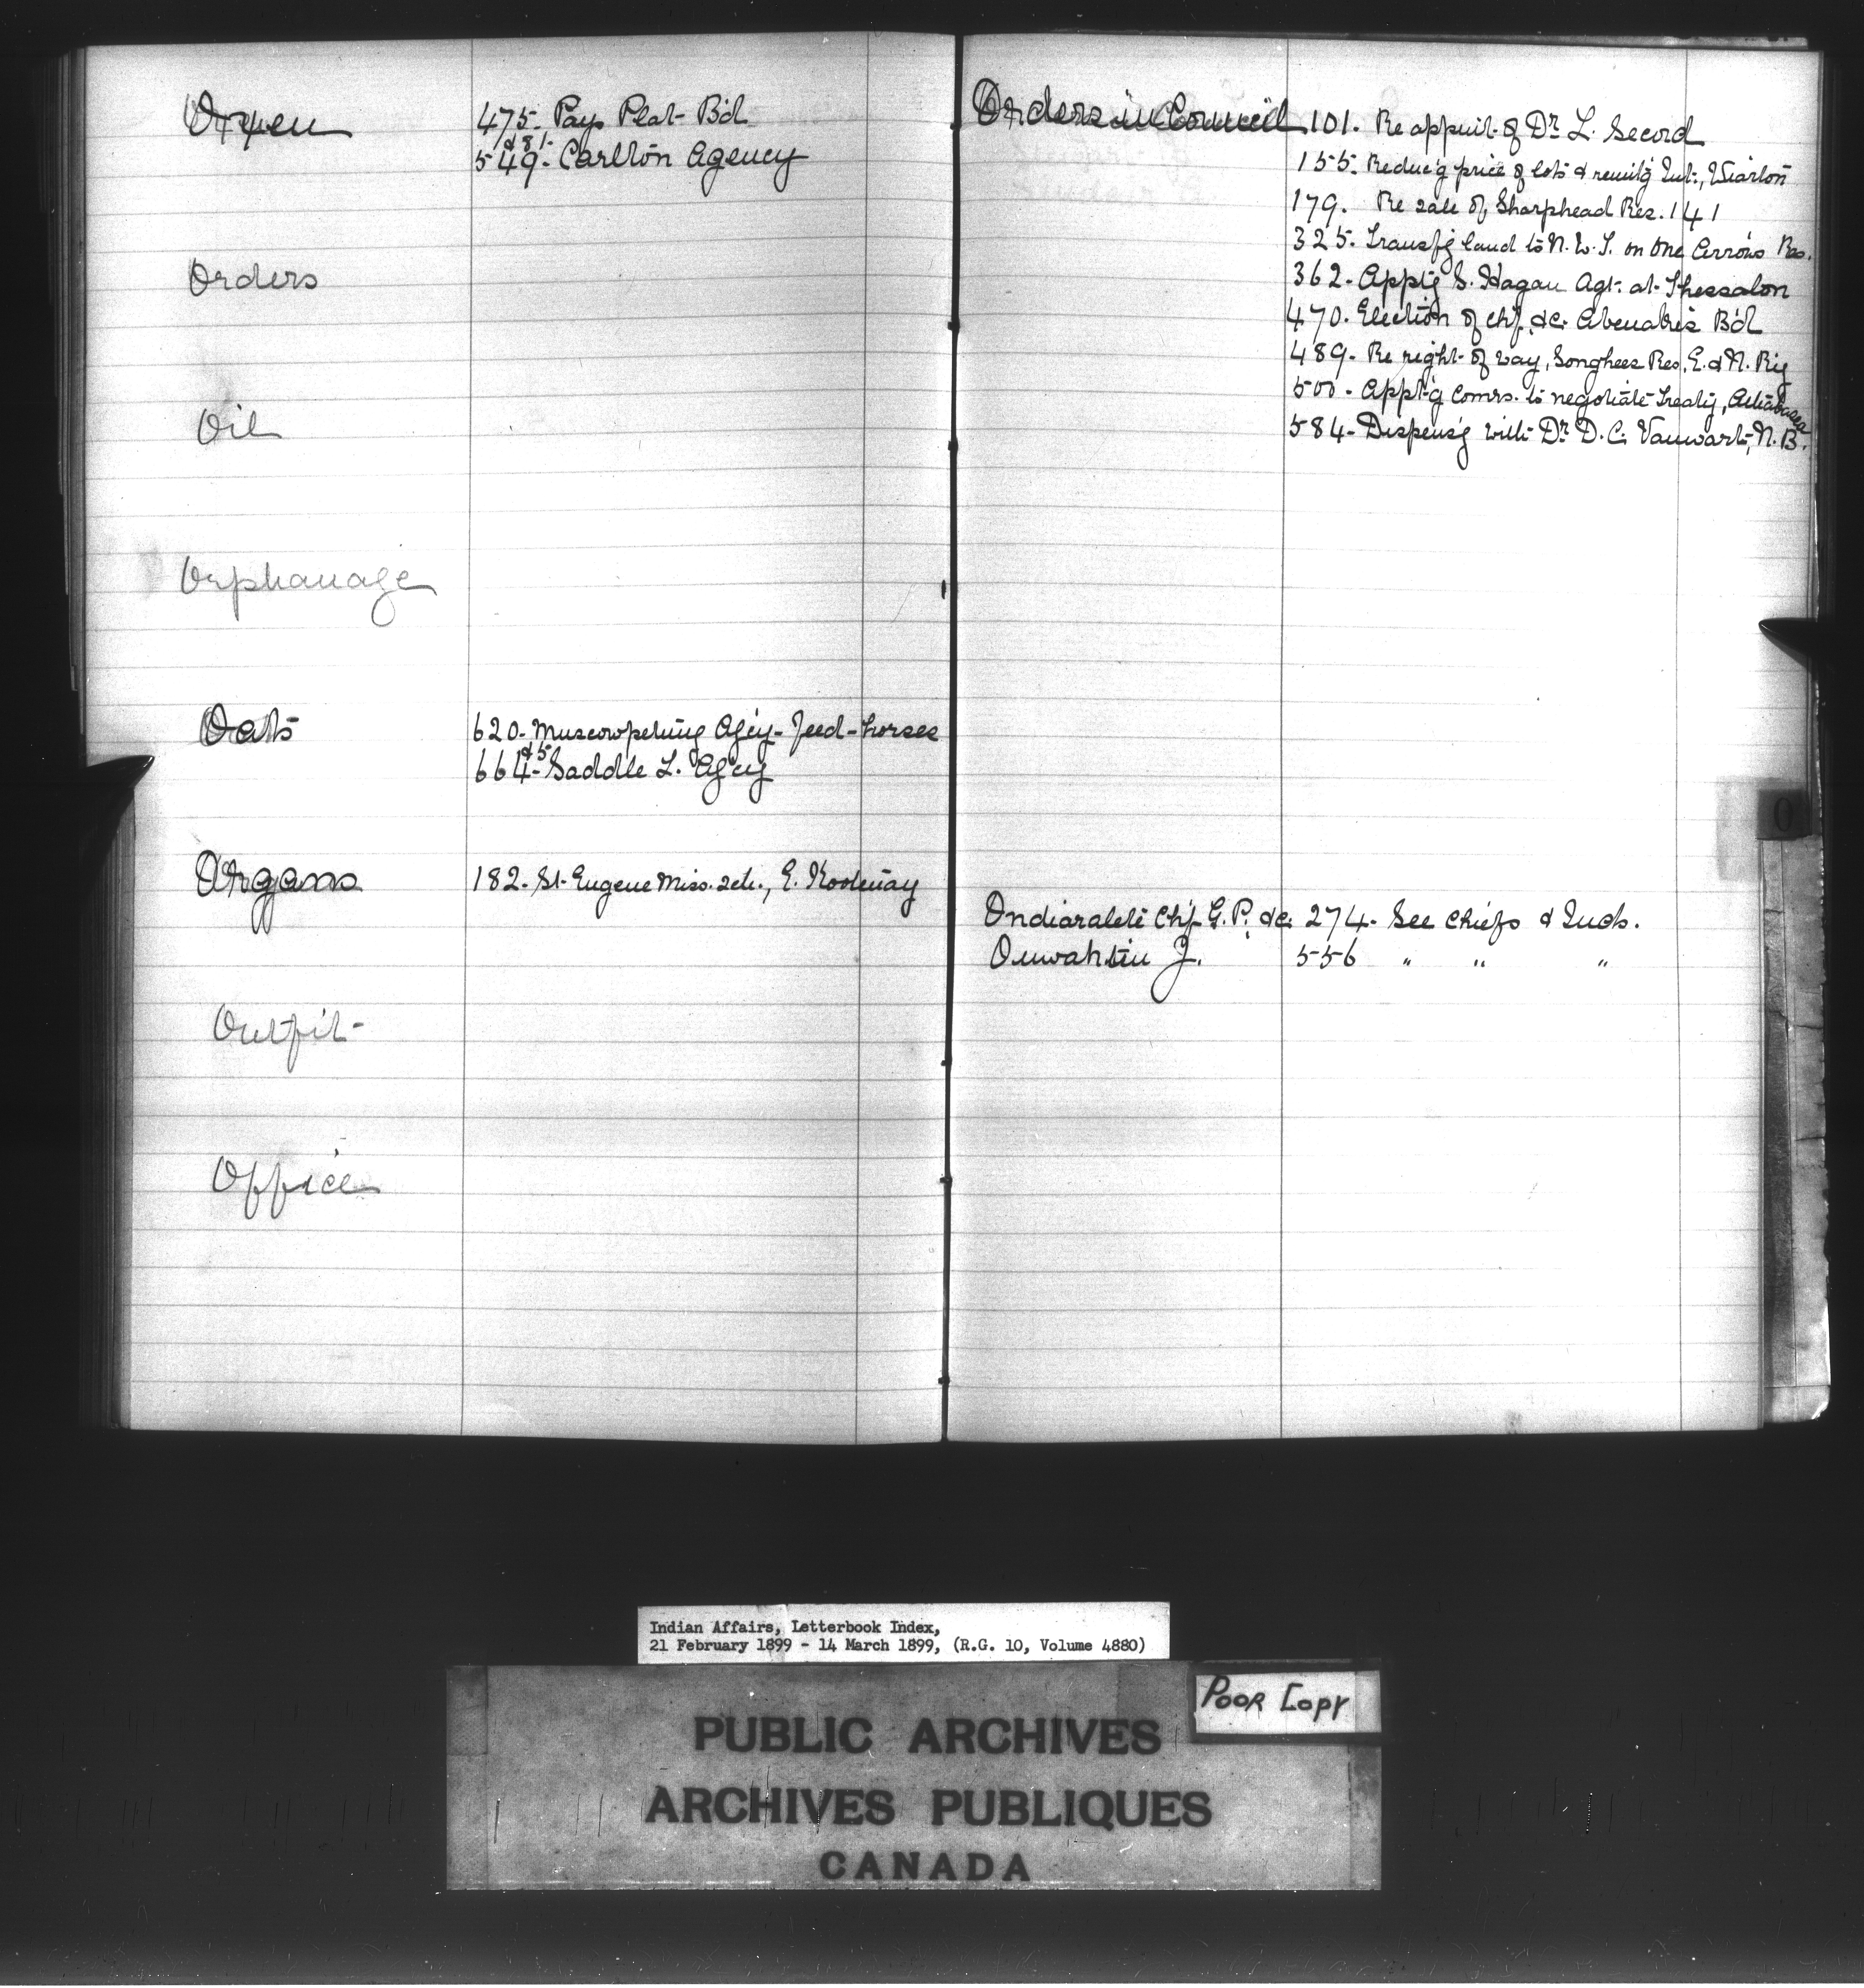 Oxen
475- Pays Plat B'd
& 81-
549- Carlton Agency
Orders
Oil
Orphanage
Oats
620- Muscowpetung Ag'cy- Feed- horses
& 5-
664- Saddle L. Ag'cy
Organs
182- St. Eugene Miss. sch., E. Kootenay
Outfit-
Office
Orders in Council 101. Re appmt. of Dr. L. Secord
155- Reduc'g price of lots & remit'g Int., Wiarton
179. Re sale of Sharphead Res. 141
325- Transf'g land to N.W.T. on One Arrow's Res.
362- App't'g S. Hagan Agt. at Thessalon
470- Election of chf. &c. Abenakis B'd
489- Re right-of way, Songhees Res. E. & N. Ry
500- App't'g Comrs. to negotiate Treaty, Athabasca
584- Dispens'g with Dr. D.C. Vanwart, N.B.
O
Ondiaralete Chf. G.P. &c. 274- See Chiefs & Inds.
J. 556 " " "
Indian Affairs, Letterbook Index,
21 February 1899 - 14 March 1899, (R.G. 10, Volume 4880)
POOR COPY
PUBLIC ARCHIVES
ARCHIVES PUBLIQUES
CANADA